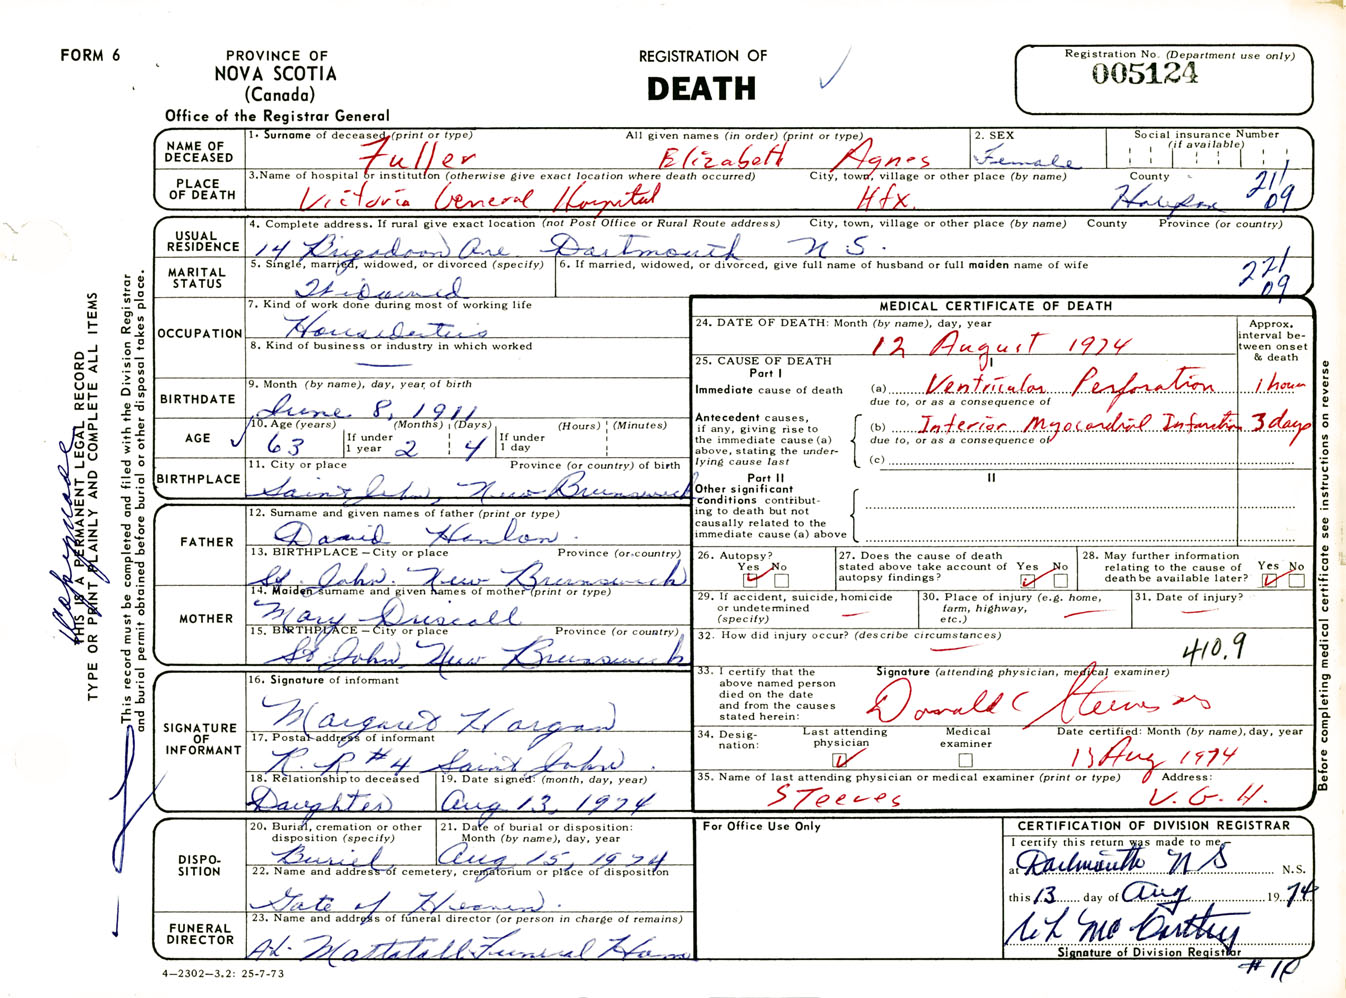 FORM 6
PROVINCE OF
NOVA SCOTIA
(Canada)
Office of the Registrar General
REGISTRATION OF
DEATH
Registration No. (Department use only)
005124
NAME OF DECEASED
1. Surname of deceased (print or type) All given names (in order) (print or type)
Fuller Elizabeth Agnes
2. SEX
Female
Social insurance Number
(if available)
PLACE OF DEATH
3. Name of hospital or institution (otherwise give exact location where death occurred) City, town, village or other place (by name) County
Victoria General Hospital Hfx. Halifax
211
09
USUAL RESIDENCE
4. Complete address. If rural give exact location (not Post Office or Rural Route address) City, town, village or other place (by name) County Province (or country)
14 Brigadoon Ave. Dartmouth N S.
MARITAL STATUS
5. Single, married, widowed, or divorced (specify)
Widowed
6. If married, widowed, or divorced, give full name of husband or full maiden name of wife
221
09
OCCUPATION
7. Kind of work done during most of working life
Houseduties
8. Kind of business or industry in which worked
—
BIRTHDATE
9. Month (by name), day, year of birth
June 8, 1911
AGE
10. Age (years) (Months) (Days) (Hours) (Minutes)
63 If under 1 year 2 4 If under 1 day
BIRTHPLACE
11. City or place Province (or country) of birth
Saint John, New Brunswick
FATHER
12. Surname and given names of father (print or type)
David Hanlon.
13. BIRTHPLACE – City or place Province (or country)
St. John. New Brunswick
MOTHER
14. Maiden surname and given names of mother (print or type)
Mary Driscoll
15. BIRTHPLACE – City or place Province (or country)
St John, New Brunswick
SIGNATURE OF INFORMANT
16. Signature of informant
Margaret Horgan
17. Postal address of informant
R. R #4 Saint John.
18. Relationship to deceased
Daughter
19. Date signed: (month, day, year)
Aug 13, 1974
DISPO-
SITION
20. Burial, cremation or other disposition (specify)
Burial,
21. Date of burial or disposition: Month (by name), day, year
Aug 15, 1974
22. Name and address of cemetery, crematorium or place of disposition
Gate of Heaven.
FUNERAL DIRECTOR
23. Name and address of funeral director (or person in charge of remains)
Mattatall Funeral Home
4—2302—3.2: 25-7-73
MEDICAL CERTIFICATE OF DEATH
24. DATE OF DEATH: Month (by name), day, year
12 August 1974
Approx. interval between onset & death
25. CAUSE OF DEATH
Part I
I
Immediate cause of death (a) Ventricular Perforation 1 hour
due to, or as a consequence of
Antecedent causes, if any, giving rise to the immediate cause (a) above, stating the underlying cause last
(b) Inferior Myocardial Infarction 3 days
due to, or as a consequence of
(c)
Part II
II
Other significant conditions contributing to death but not causally related to the immediate cause (a) above
26. Autopsy?
Yes No
27. Does the cause of death stated above take account of autopsy findings?
Yes No
28. May further information relating to the cause of death be available later?
Yes No
29. If accident, suicide, homicide or undetermined (specify)
—
30. Place of injury (e.g. home, farm, highway, etc.)
—
31. Date of injury?
—
32. How did injury occur? (describe circumstances)
—
410.9
33. I certify that the above named person died on the date and from the causes stated herein:
Signature (attending physician, medical examiner)
Donald C Steeves
34. Designation:
Last attending physician
Medical examiner
Date certified: Month (by name), day, year
13 Aug 1974
35. Name of last attending physician or medical examiner (print or type) Address:
STeeves V. G. H.
For Office Use Only
CERTIFICATION OF DIVISION REGISTRAR
I certify this return was made to me
at Dartmouth N S N.S.
this 13 day of Aug 1974
McCarthy
Signature of Division Registrar
THIS IS A PERMANENT LEGAL RECORD
TYPE OR PRINT PLAINLY AND COMPLETE ALL ITEMS
This record must be completed and filed with the Division Registrar
and burial permit obtained before burial or other disposal takes place.
Before completing medical certificate see instructions on reverse